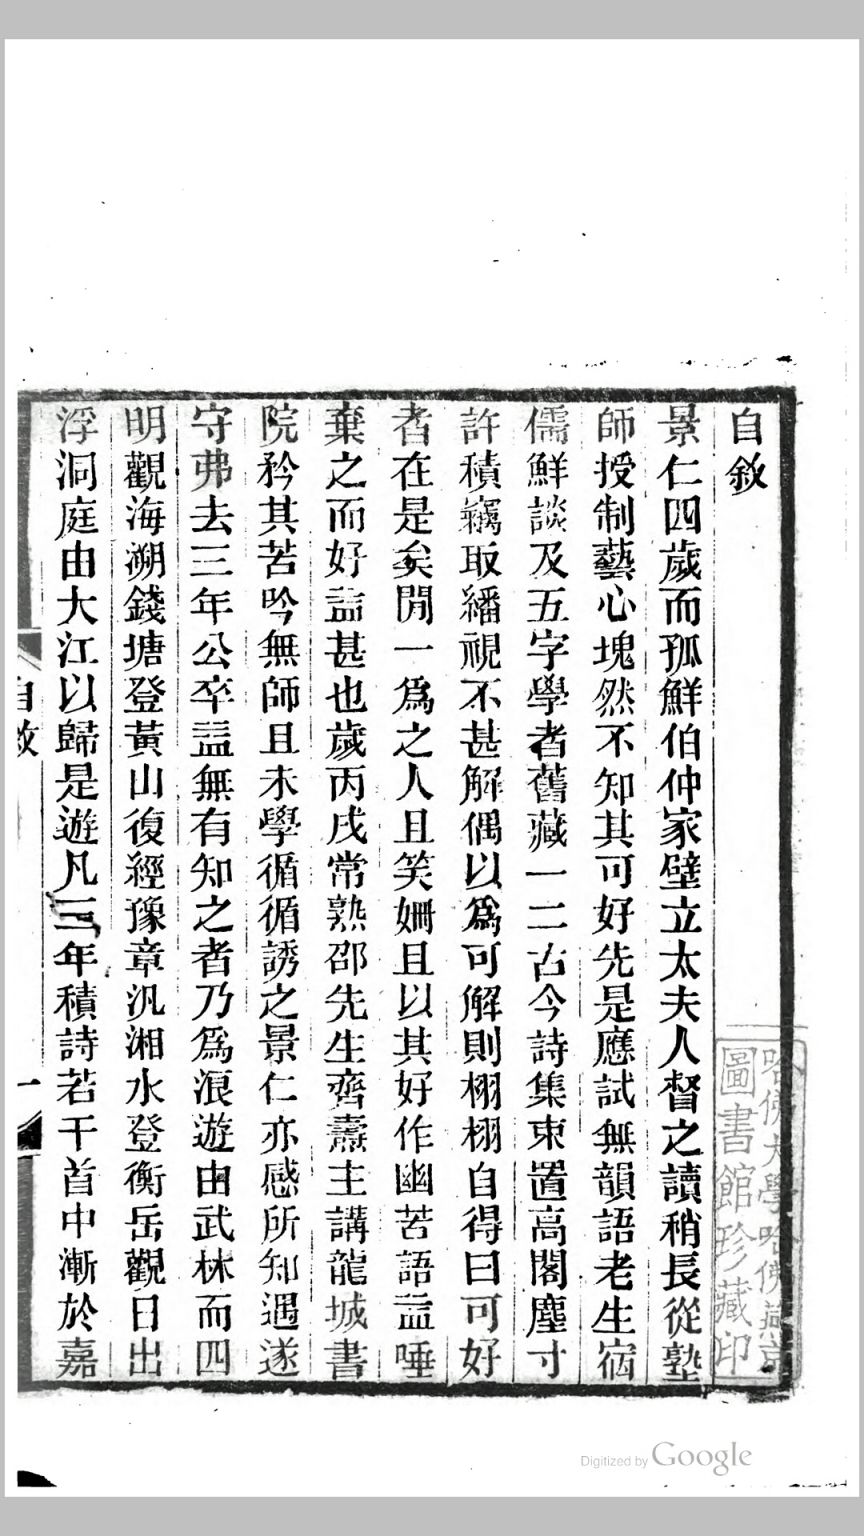 自敘
景仁四歲而孤鮮伯仲家壁立太夫人督之讀稍長從塾
師授制藝心塊然不知其可好先是應試無韻語老生宿
儒鮮談及五字學者舊藏一二古今詩集束置高閣塵寸
許積竊取繙視不甚解偶以爲可解則栩栩自得曰可好
者在是矣閒一爲之人且笑姍且以其好作幽苦語益唾
棄之而好益甚也歲丙戌常熟邵先生齊燾主講龍城書
院矜其苦吟無師且未學循循誘之景仁亦感所知遇遂
守弗去三年公卒益無有知之者乃爲浪遊由武林而四
明觀海溯錢塘登黃山復經豫章汎湘水登衡岳觀日出
浮洞庭由大江以歸是遊凡三年積詩若干首中漸於嘉
自敘
一
哈佛大學哈佛燕京
圖書館珍藏印
Digitized by Google